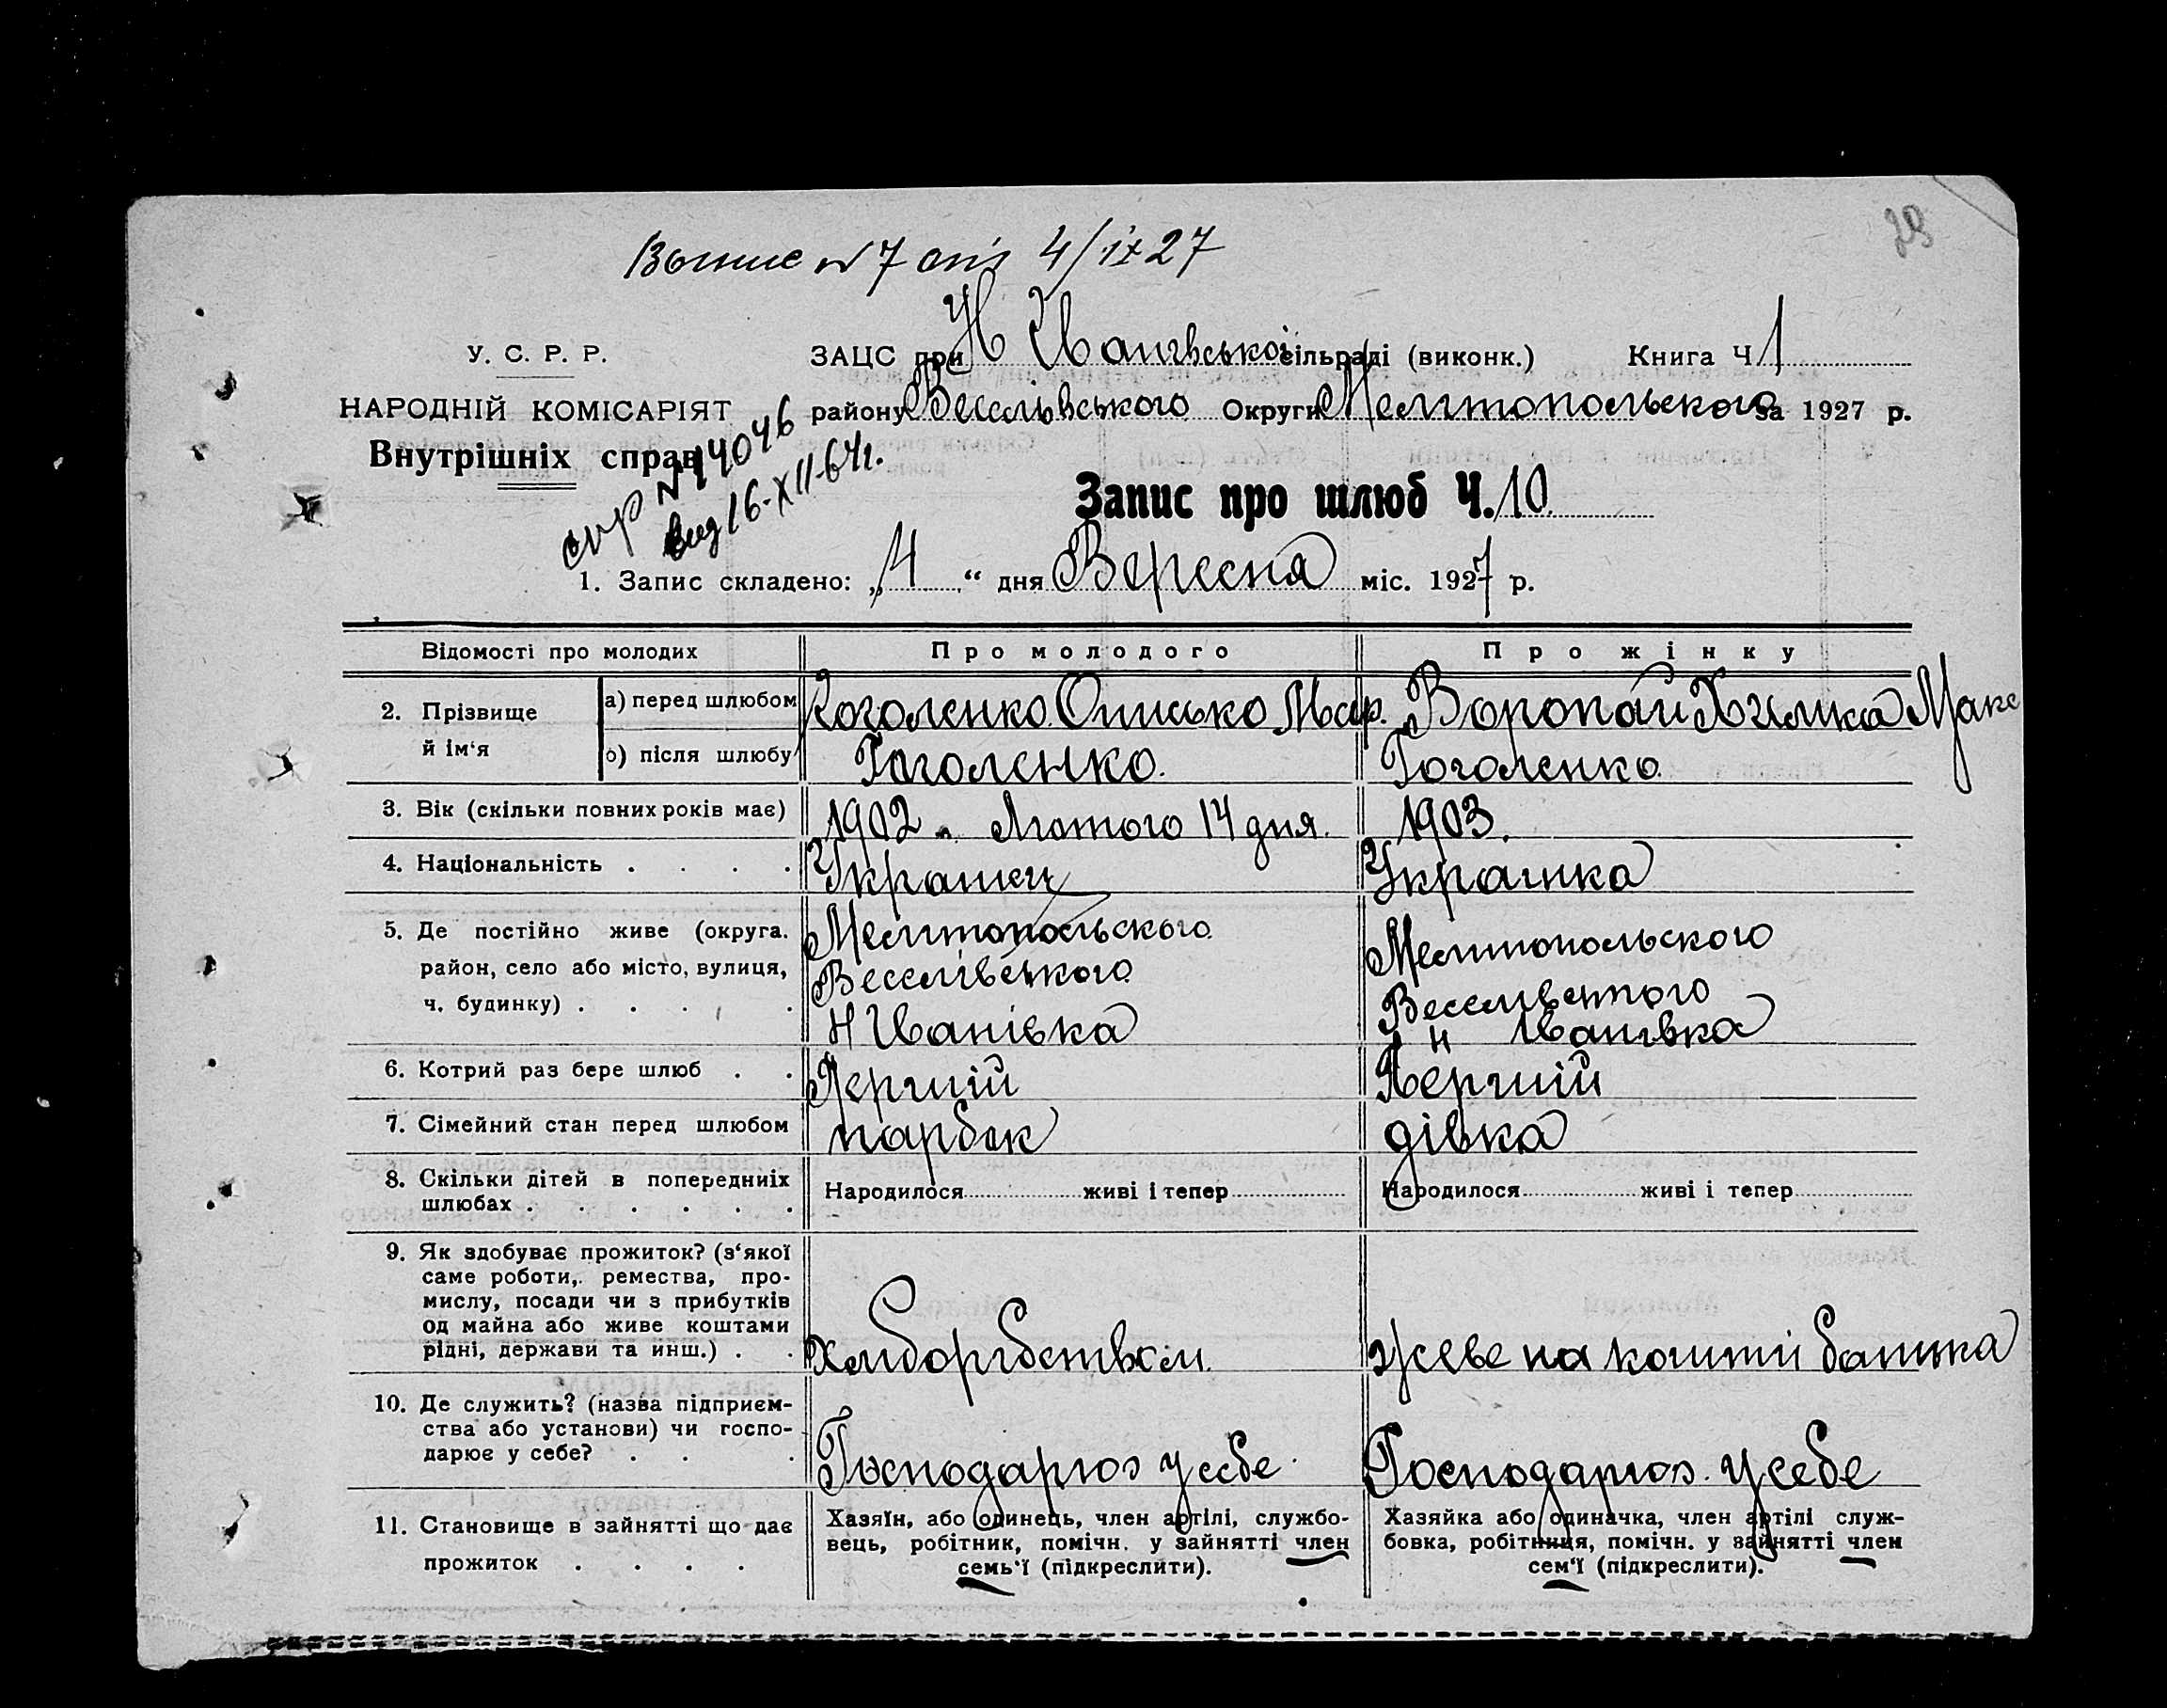 29
Вопис N 7 від 4/ix 27
У. С. Р. Р.
НАРОДНІЙ КОМІСАРІЯТ
Внутрішніх справ
N 14046
вид 16-XII-64г.
ЗАЦС при Н Іванівської сільраді (виконк.) Книга Ч 1
району Веселівського Округи Мелітопольского за 1927 р.
Запис про шлюб Ч. 10
1. Запис складено: „4“ дня Вересня міс. 1927 р.
Відомості про молодих Про молодого Про жінку
2. Прізвище й ім‘я
а) перед шлюбом Гоголенко Описько Мар. Воропай Химка Макс
б) після шлюбу Гоголенко. Гоголенко
3. Вік (скільки повних років має) 1902 Лютого 14 дня. 1903.
4. Національність . . . . Украінец Украінка
5. Де постійно живе (округа. Мелітопольского Мелітопольского
район, село або місто, вулиця, Веселівського Веселівського
ч. будинку) . . . . Н Іванівка Н Іванівка
6. Котрий раз бере шлюб . . Перший Перший
7. Сімейний стан перед шлюбом парбок дівка
8. Скільки дітей в попередниіх
шлюбах . . . . . .
Народилося живі і тепер Народилося живі і тепер
9. Як здобуває прожиток? (з‘якої
саме роботи,. ремества, про-
мислу, посади чи з прибутків
од майна або живе коштами
рідні, держави та инш.) . . Хліборобством. Жеве на кошти батька
10. Де служить? (назва підприєм-
ства або установи) чи госпо-
дарює у себе? . . . Господарюэ у себе Господарюэ у себе
11. Становище в зайнятті що дає
прожиток . . . .
Хазяїн, або одинець, член артілі, службо-
вець, робітник, помічн. у зайнятті член
семь‘ї (підкреслити).
Хазяйка або одиначка, член артілі служ-
бовка, робітниця, помічн. у зайнятті член
сем‘ї (підкреслити).